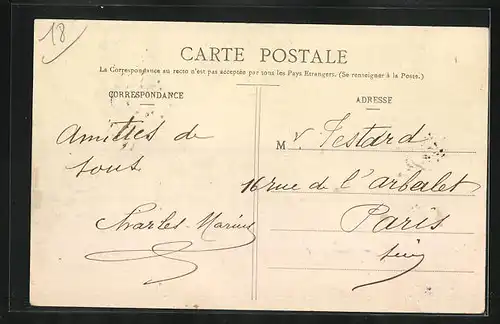 18
CARTE POSTALE
La Correspondance au recto n'est pas acceptée par tous les Pays Etrangers. (Se renseigner à la Poste.)
CORRESPONDANCE
Amitiés de
tous
Charles-Marius
ADRESSE
M r. Testard
16 rue de l'arbalet
Paris